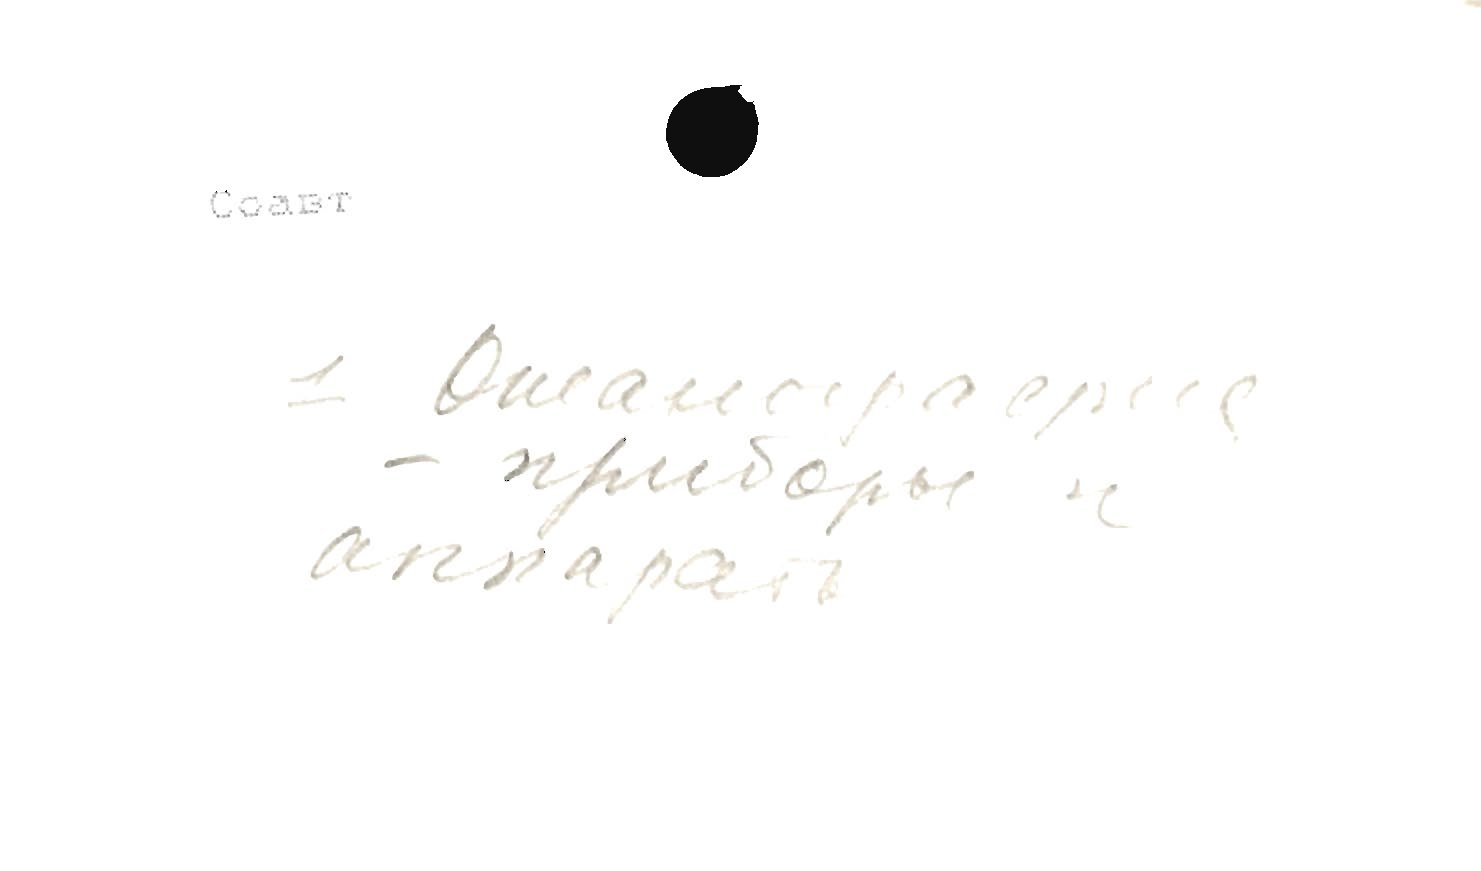 Соавт
1 Океанография
- приборы и
аппараты